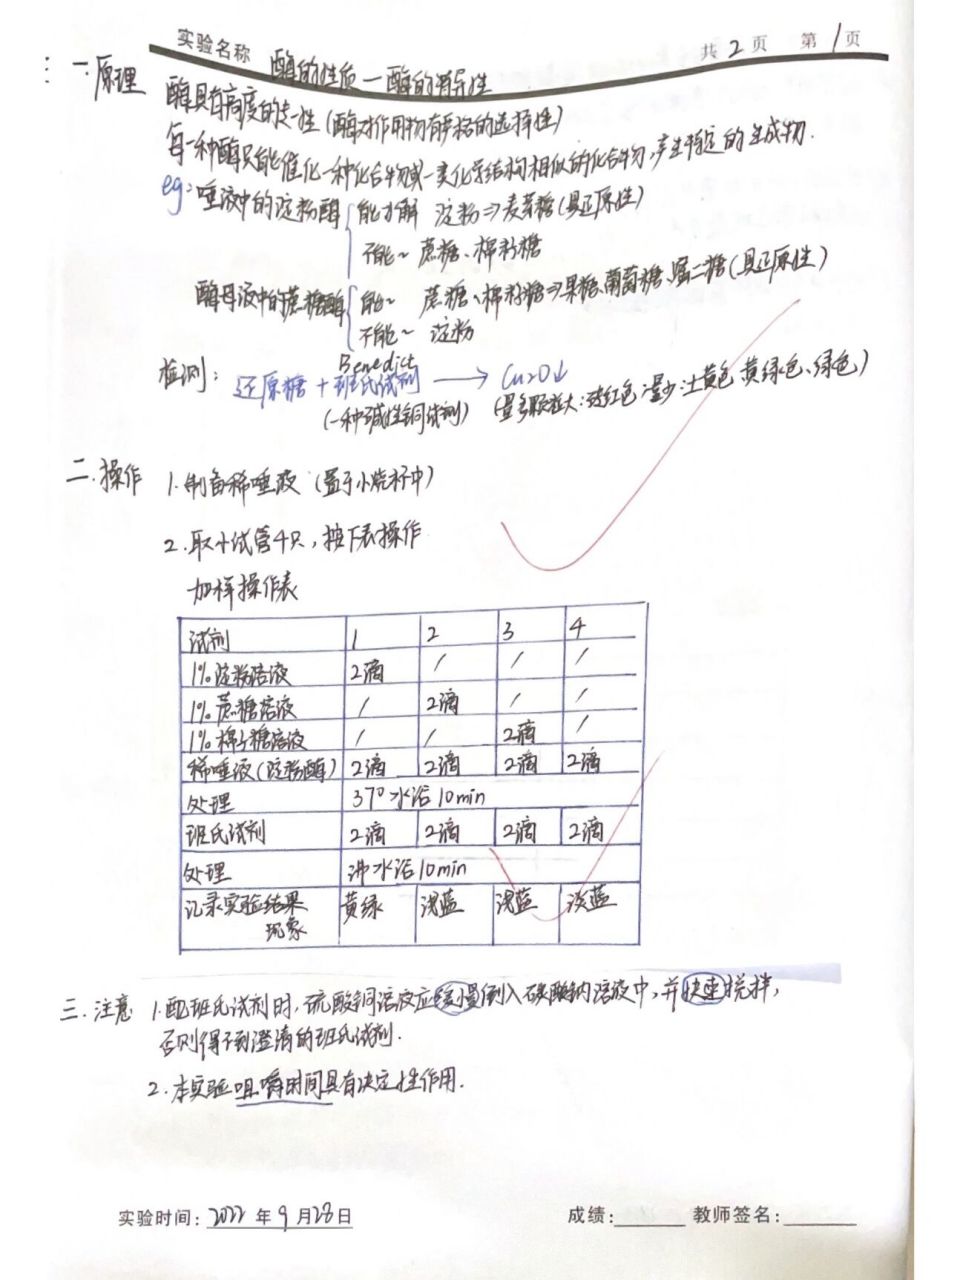 实验名称 酶的性质—酶的专一性 共 2 页 第 1 页
一.原理 酶具有高度的专一性(酶对作用物有严格的选择性)
每一种酶只能催化一种化合物或一类化学结构相似的化合物,产生特定的生成物.
eg: 唾液中的淀粉酶 能水解 淀粉⇒麦芽糖(具还原性)
不能~ 蔗糖、棉籽糖
酶母液中的蔗糖酶 能~ 蔗糖、棉籽糖⇒果糖、葡萄糖、蜜二糖(具还原性)
不能~ 淀粉
检测: 还原糖 + Benedict 班氏试剂 → Cu2O↓
(一种碱性铜试剂) (量多颗粒大:砖红色 量少:土黄色 黄绿色、绿色)
二.操作 1.制备稀唾液 (置于小烧杯中)
2.取小试管4只,按下表操作
加样操作表
试剂 1 2 3 4
1%淀粉溶液 2滴 / / /
1%蔗糖溶液 / 2滴 / /
1%棉子糖溶液 / / 2滴 /
稀唾液(淀粉酶) 2滴 2滴 2滴 2滴
处理 37°水浴10min
班氏试剂 2滴 2滴 2滴 2滴
处理 沸水浴10min
记录实验结果 黄绿 浅蓝 浅蓝 淡蓝
现象
三.注意 1.配班氏试剂时,硫酸铜溶液应缓慢倒入碳酸钠溶液中,并快速搅拌,
否则得不到澄清的班氏试剂.
2.本实验咀嚼时间具有决定性作用.
实验时间: 2022 年 9 月 28 日 成绩: 教师签名: